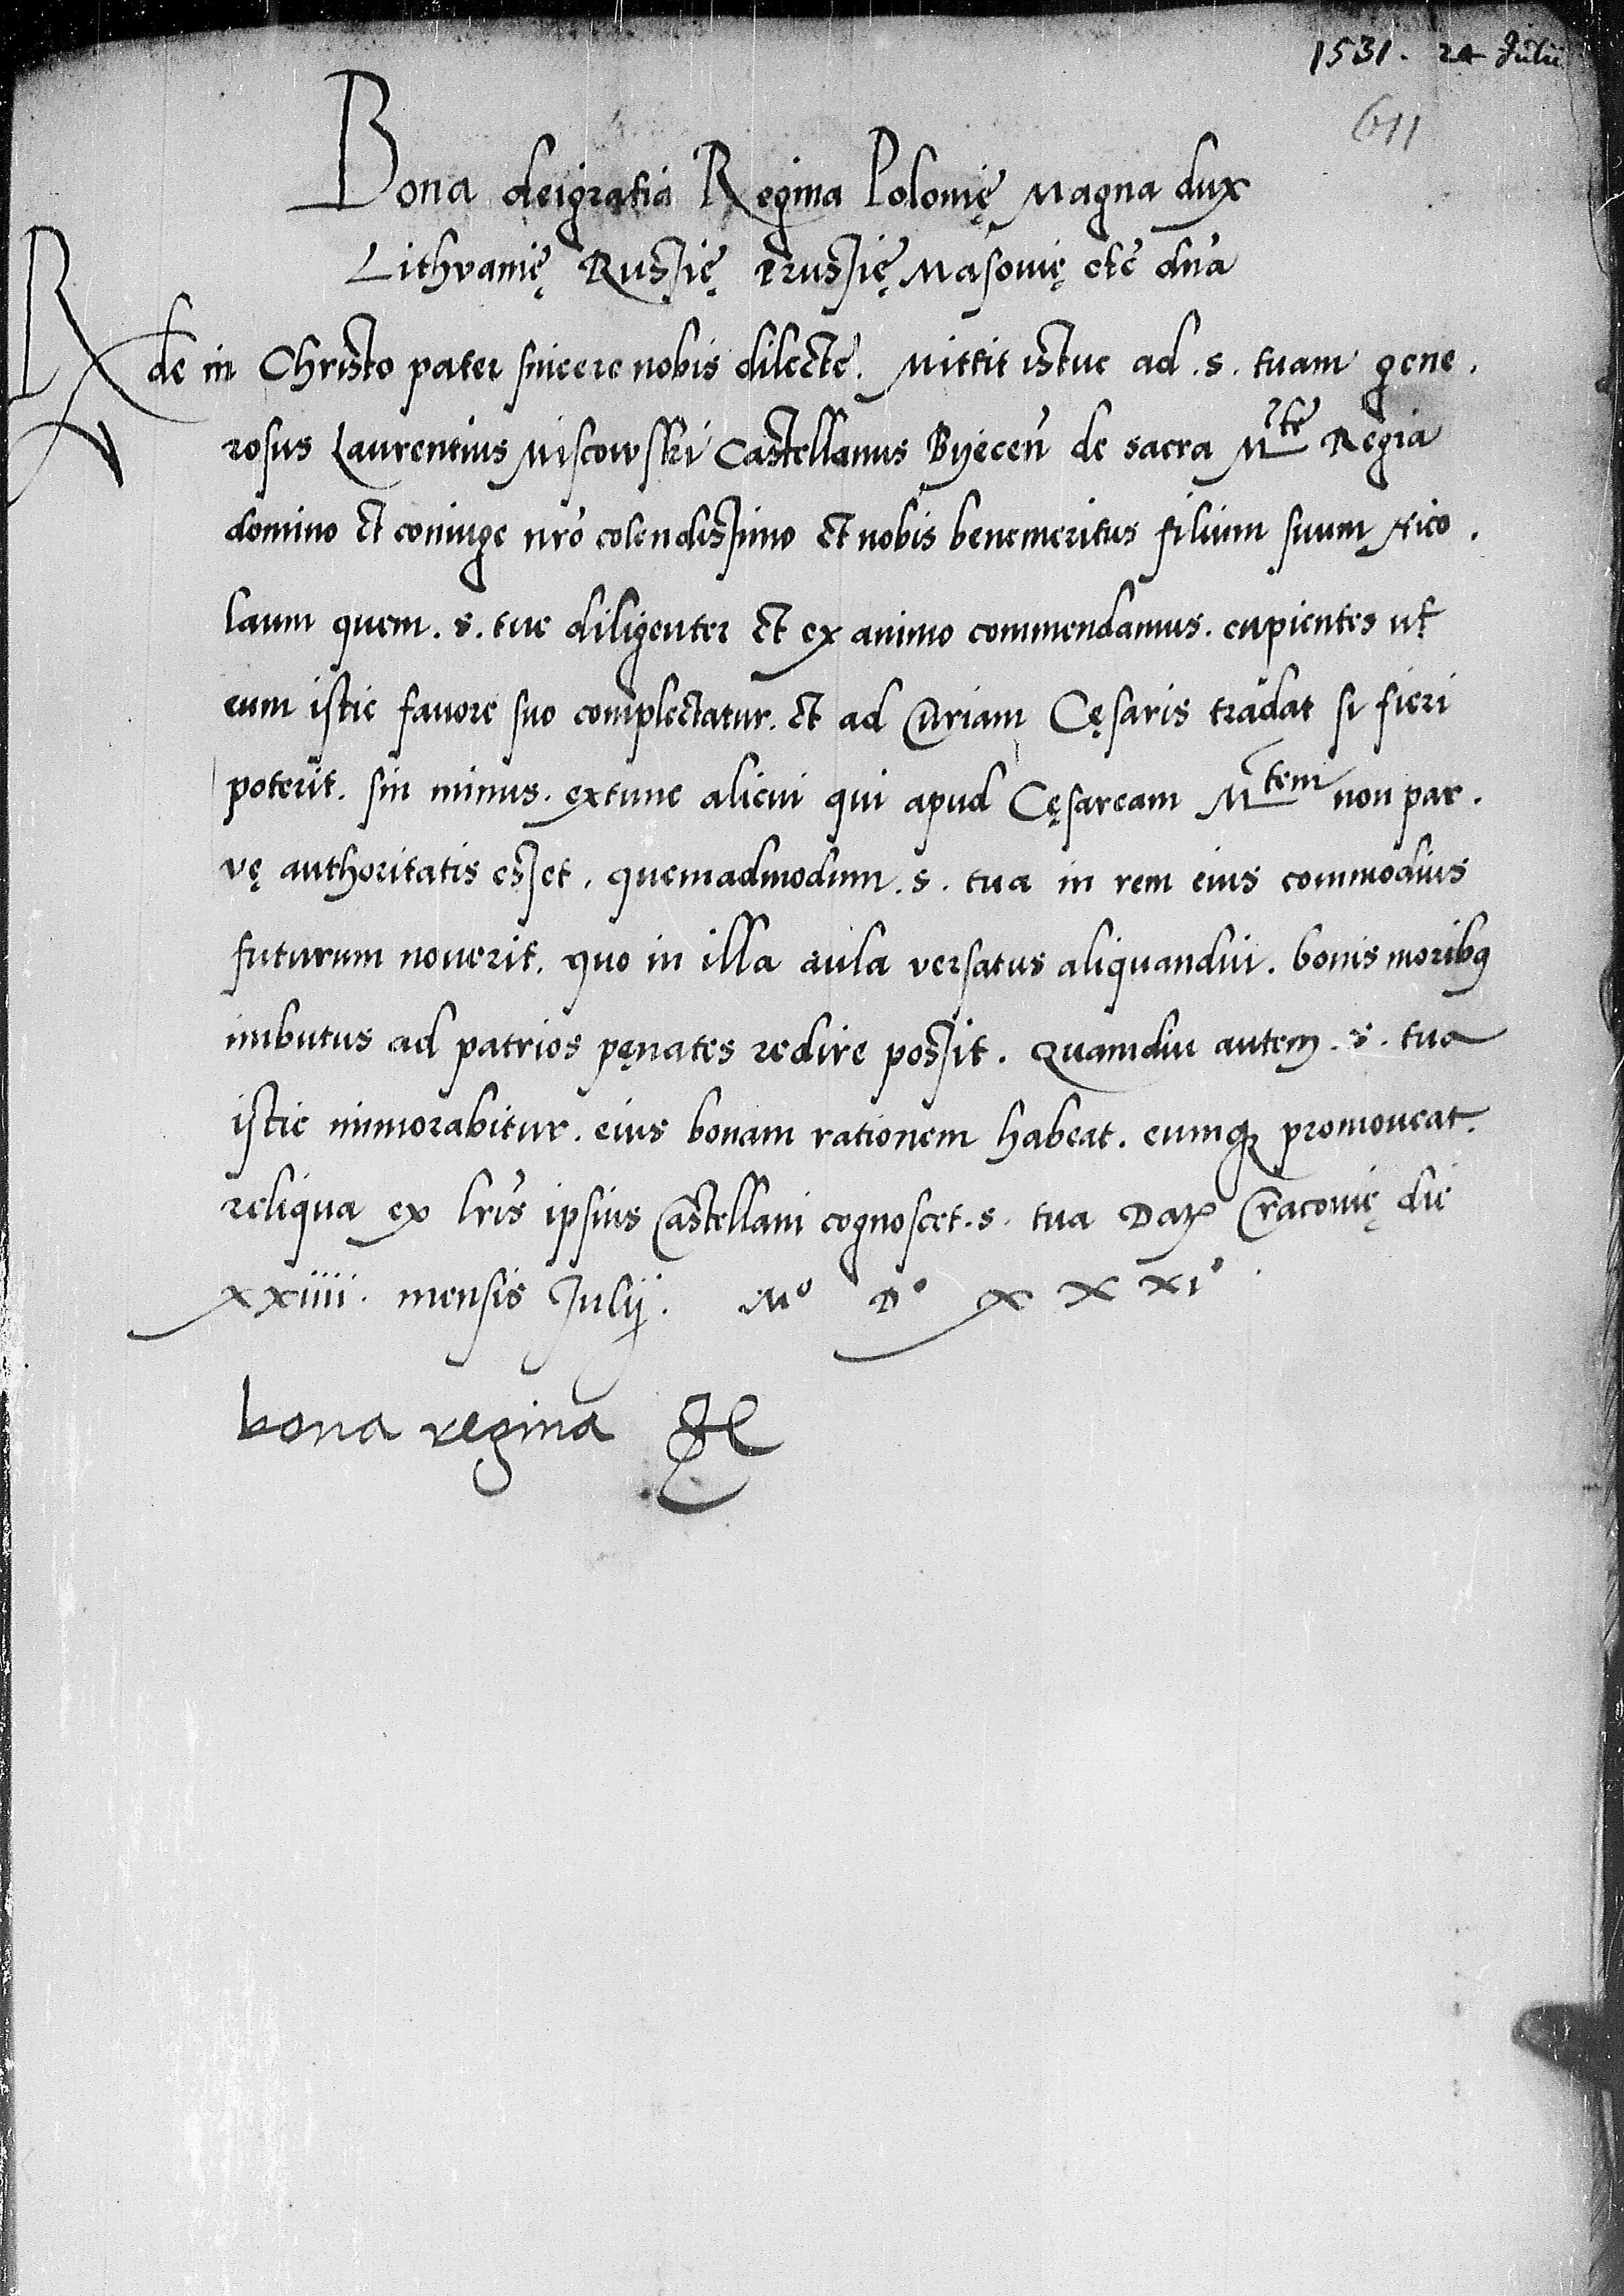 1531. 24 Julii
611
Bona dei gratia Regina Polonię Magna dux
Lithvanię Russię Prussię Masovię etc̄ dn̄a
Rde in Christo pater sincere nobis dilecte. Mittit istuc ad .s. tuam gene.
rosus Laurentius Miscowski Castellanus Byecen̄ de sacra Mte Regia
domino et coniuge nr̄o colendissimo et nobis benemeritus filium suum Nico.
laum quem .s. tue diligenter et ex animo commendamus. cupientes ut
eum istic favore suo complectatur. et ad Curiam Cęsaris tradat si fieri
poterit. sin minus. extunc alicui qui apud Cęsaream Mtem non par.
vę authoritatis esset. quemadmodum .s. tua in rem eius commodius
futurum noverit. quo in illa aula versatus aliquandiu. bonis moribꝰ
imbutus ad patrios pęnates redire possit. Quamdiu autem .s. tua
istic immorabitur. eius bonam rationem habeat. eumqꝫ promoveat.
reliqua ex lr̄is ipsius Castellani cognoscet .s. tua Datꝫ Cracovię die
xxiiii. mensis Julij. Mº Dº x x xiº
bona regina